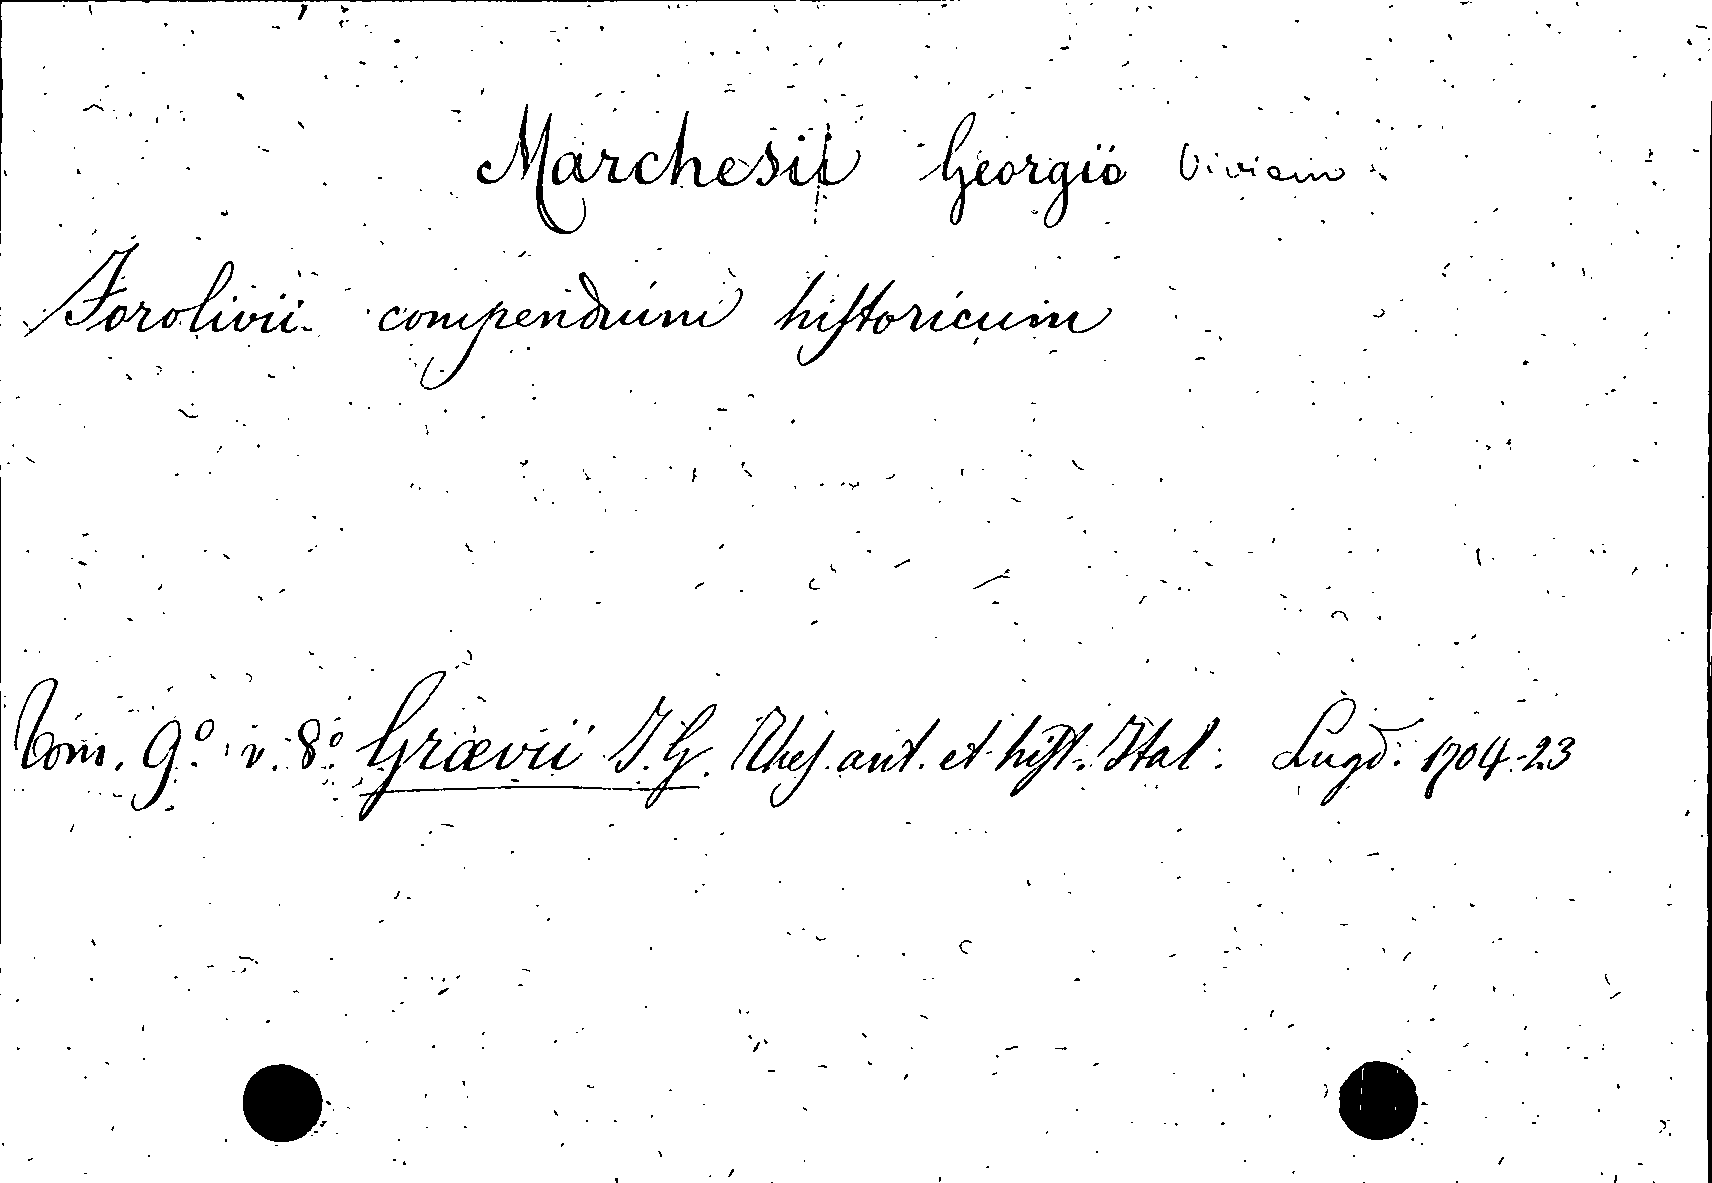 Marchesii Georgio Viviano
Forolivii compendium historicum
Tom. 9º v. 8º Grævii J. G. Thes. ant. et hist. Ital. Lugd. 1704-23